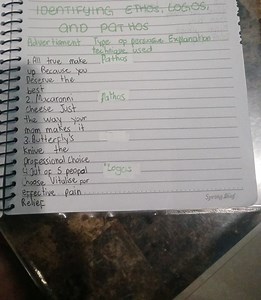 IDENTIFYING ETHOS, LOGOS,
AND PATHOS
Advertisment Type of persuasive Explanation
technique used
1. All true make Pathos
up Because you
Deserve the
best
2. Macaronni Pathos
cheese Just
the way your
mom makes it
3. Butterfly's
Knive the
professional choice
4. out of 5 peopal Logos
Choose Vitalise for
effective pain
Relief